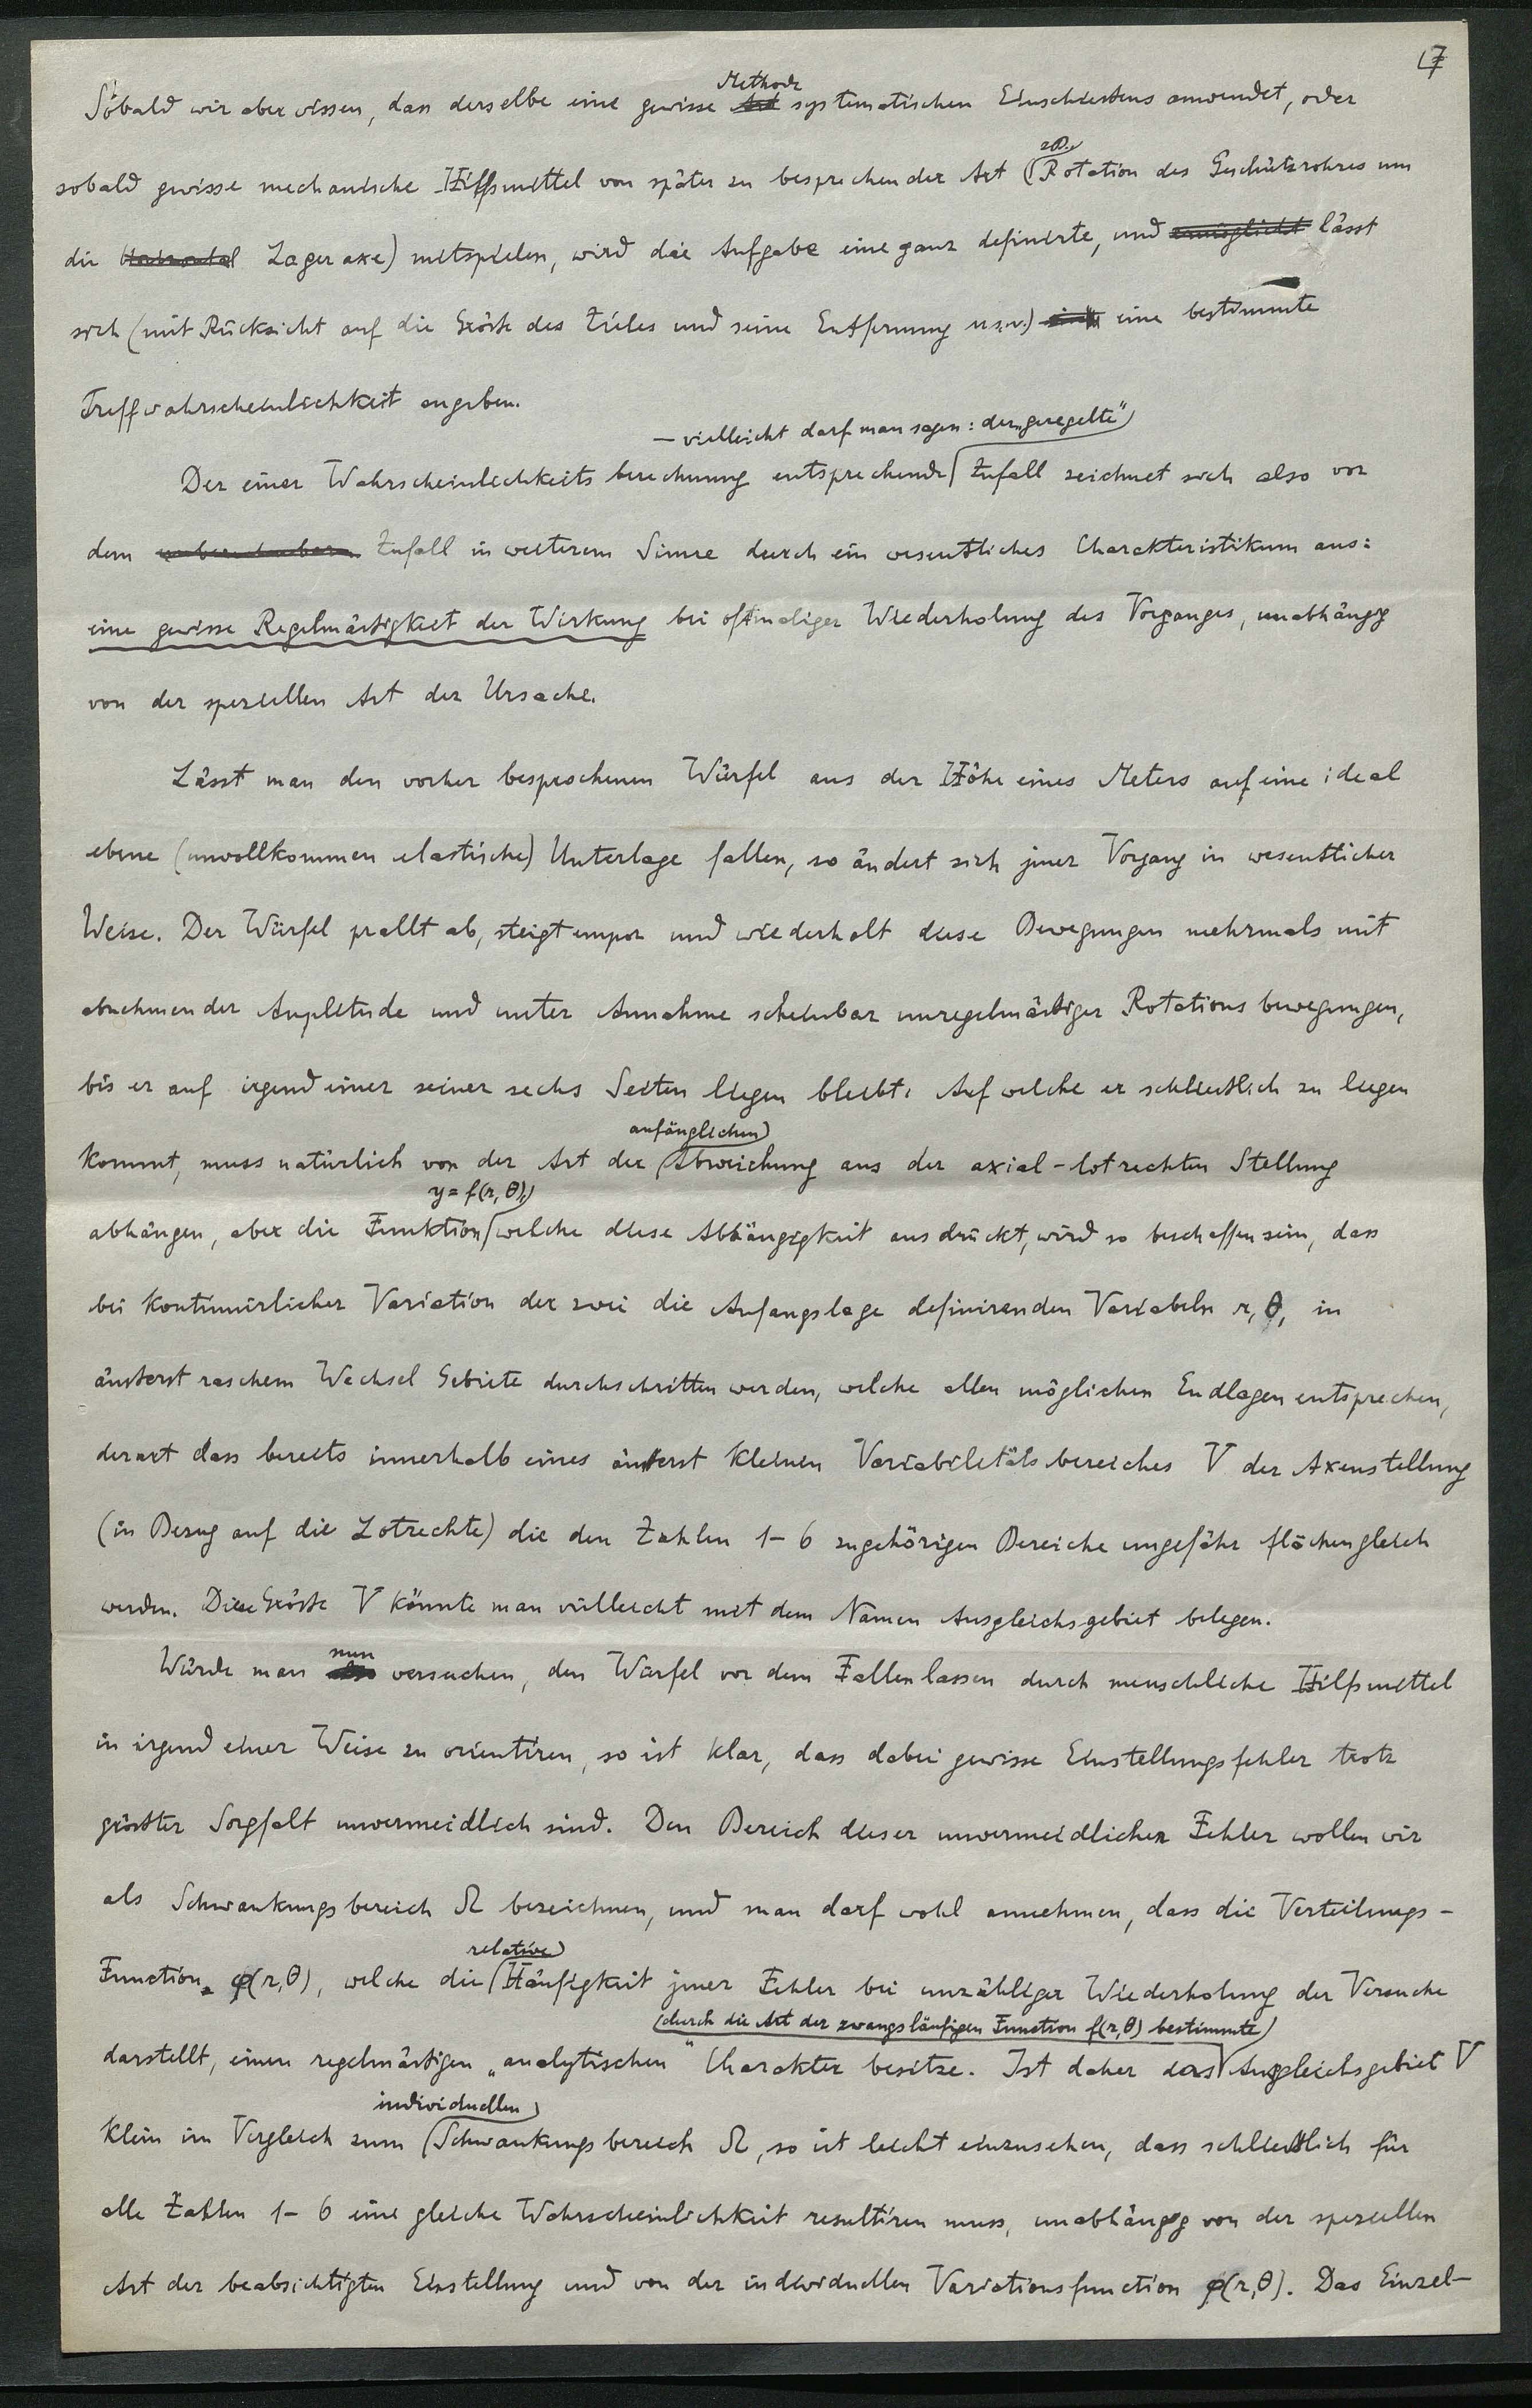 7
Sobald wir aber wissen, dass derselbe eine gewisse Methode systematischen Einschiessens anwendet, oder
sobald gewisse mechanische Hilfsmittel von später zu besprechender Art (z.B. Rotation des Geschützrohres um
die Lageraxe) mitspielen, wird die Aufgabe eine ganz definirte, und lässt
sich (mit Rücksicht auf die Grösse des Zieles und seine Entfernung usw.) eine bestimmte
Treffwahrscheinlichkeit angeben.
Der einer Wahrscheinlichkeitsberechnung entsprechende — vielleicht darf man sagen: der „geregelte“ Zufall zeichnet sich also vor
dem Zufall in weiterem Sinne durch ein wesentliches Charakteristikum aus:
eine gewisse Regelmässigkeit der Wirkung bei oftmaliger Wiederholung des Vorganges, unabhängig
von der speziellen Art der Ursache.
Lässt man den vorher besprochenen Würfel aus der Höhe eines Meters auf eine ideal
ebene (unvollkommen elastische) Unterlage fallen, so ändert sich jener Vorgang in wesentlicher
Weise. Der Würfel prallt ab, steigt empor und wiederholt diese Bewegungen mehrmals mit
abnehmender Amplitude und unter Annahme scheinbar unregelmässiger Rotationsbewegungen,
bis er auf irgend einer seiner sechs Seiten liegen bleibt. Auf welche er schliesslich zu liegen
kommt, muss natürlich von der Art der anfänglichen Abweichung aus der axial-lotrechten Stellung
abhängen, aber die Funktion y = f(r, θ), welche diese Abhängigkeit ausdrückt, wird so beschaffen sein, dass
bei kontinuirlicher Variation der zwei die Anfangslage definirenden Variabeln r, θ, in
äusserst raschem Wechsel Gebiete durchschritten werden, welche allen möglichen Endlagen entsprechen,
derart dass bereits innerhalb eines äusserst kleinen Variabilitätsbereiches V der Axenstellung
(in Bezug auf die Lotrechte) die den Zahlen 1-6 zugehörigen Bereiche ungefähr flächengleich
werden. Diese Grösse V könnte man vielleicht mit dem Namen Ausgleichsgebiet belegen.
Würde man nun versuchen, den Würfel vor dem Fallenlassen durch menschliche Hilfsmittel
in irgend einer Weise zu orientiren, so ist klar, dass dabei gewisse Einstellungsfehler trotz
grösster Sorgfalt unvermeidlich sind. Den Bereich dieser unvermeidlichen Fehler wollen wir
als Schwankungsbereich Ω bezeichnen, und man darf wohl annehmen, dass die Verteilungs-
Function φ(r,θ), welche die relative Häufigkeit jener Fehler bei unzähliger Wiederholung der Versuche
darstellt, einen regelmässigen „analytischen“ Charakter besitze. Ist daher das (durch die Art der zwangsläufigen Function f(r,θ) bestimmte) Ausgleichsgebiet V
klein im Vergleich zum individuellen Schwankungsbereich Ω, so ist leicht einzusehen, dass schliesslich für
alle Zahlen 1-6 eine gleiche Wahrscheinlichkeit resultiren muss, unabhängig von der speziellen
Art der beabsichtigten Einstellung und von der individuellen Variationsfunction φ(r,θ). Das Einzel-